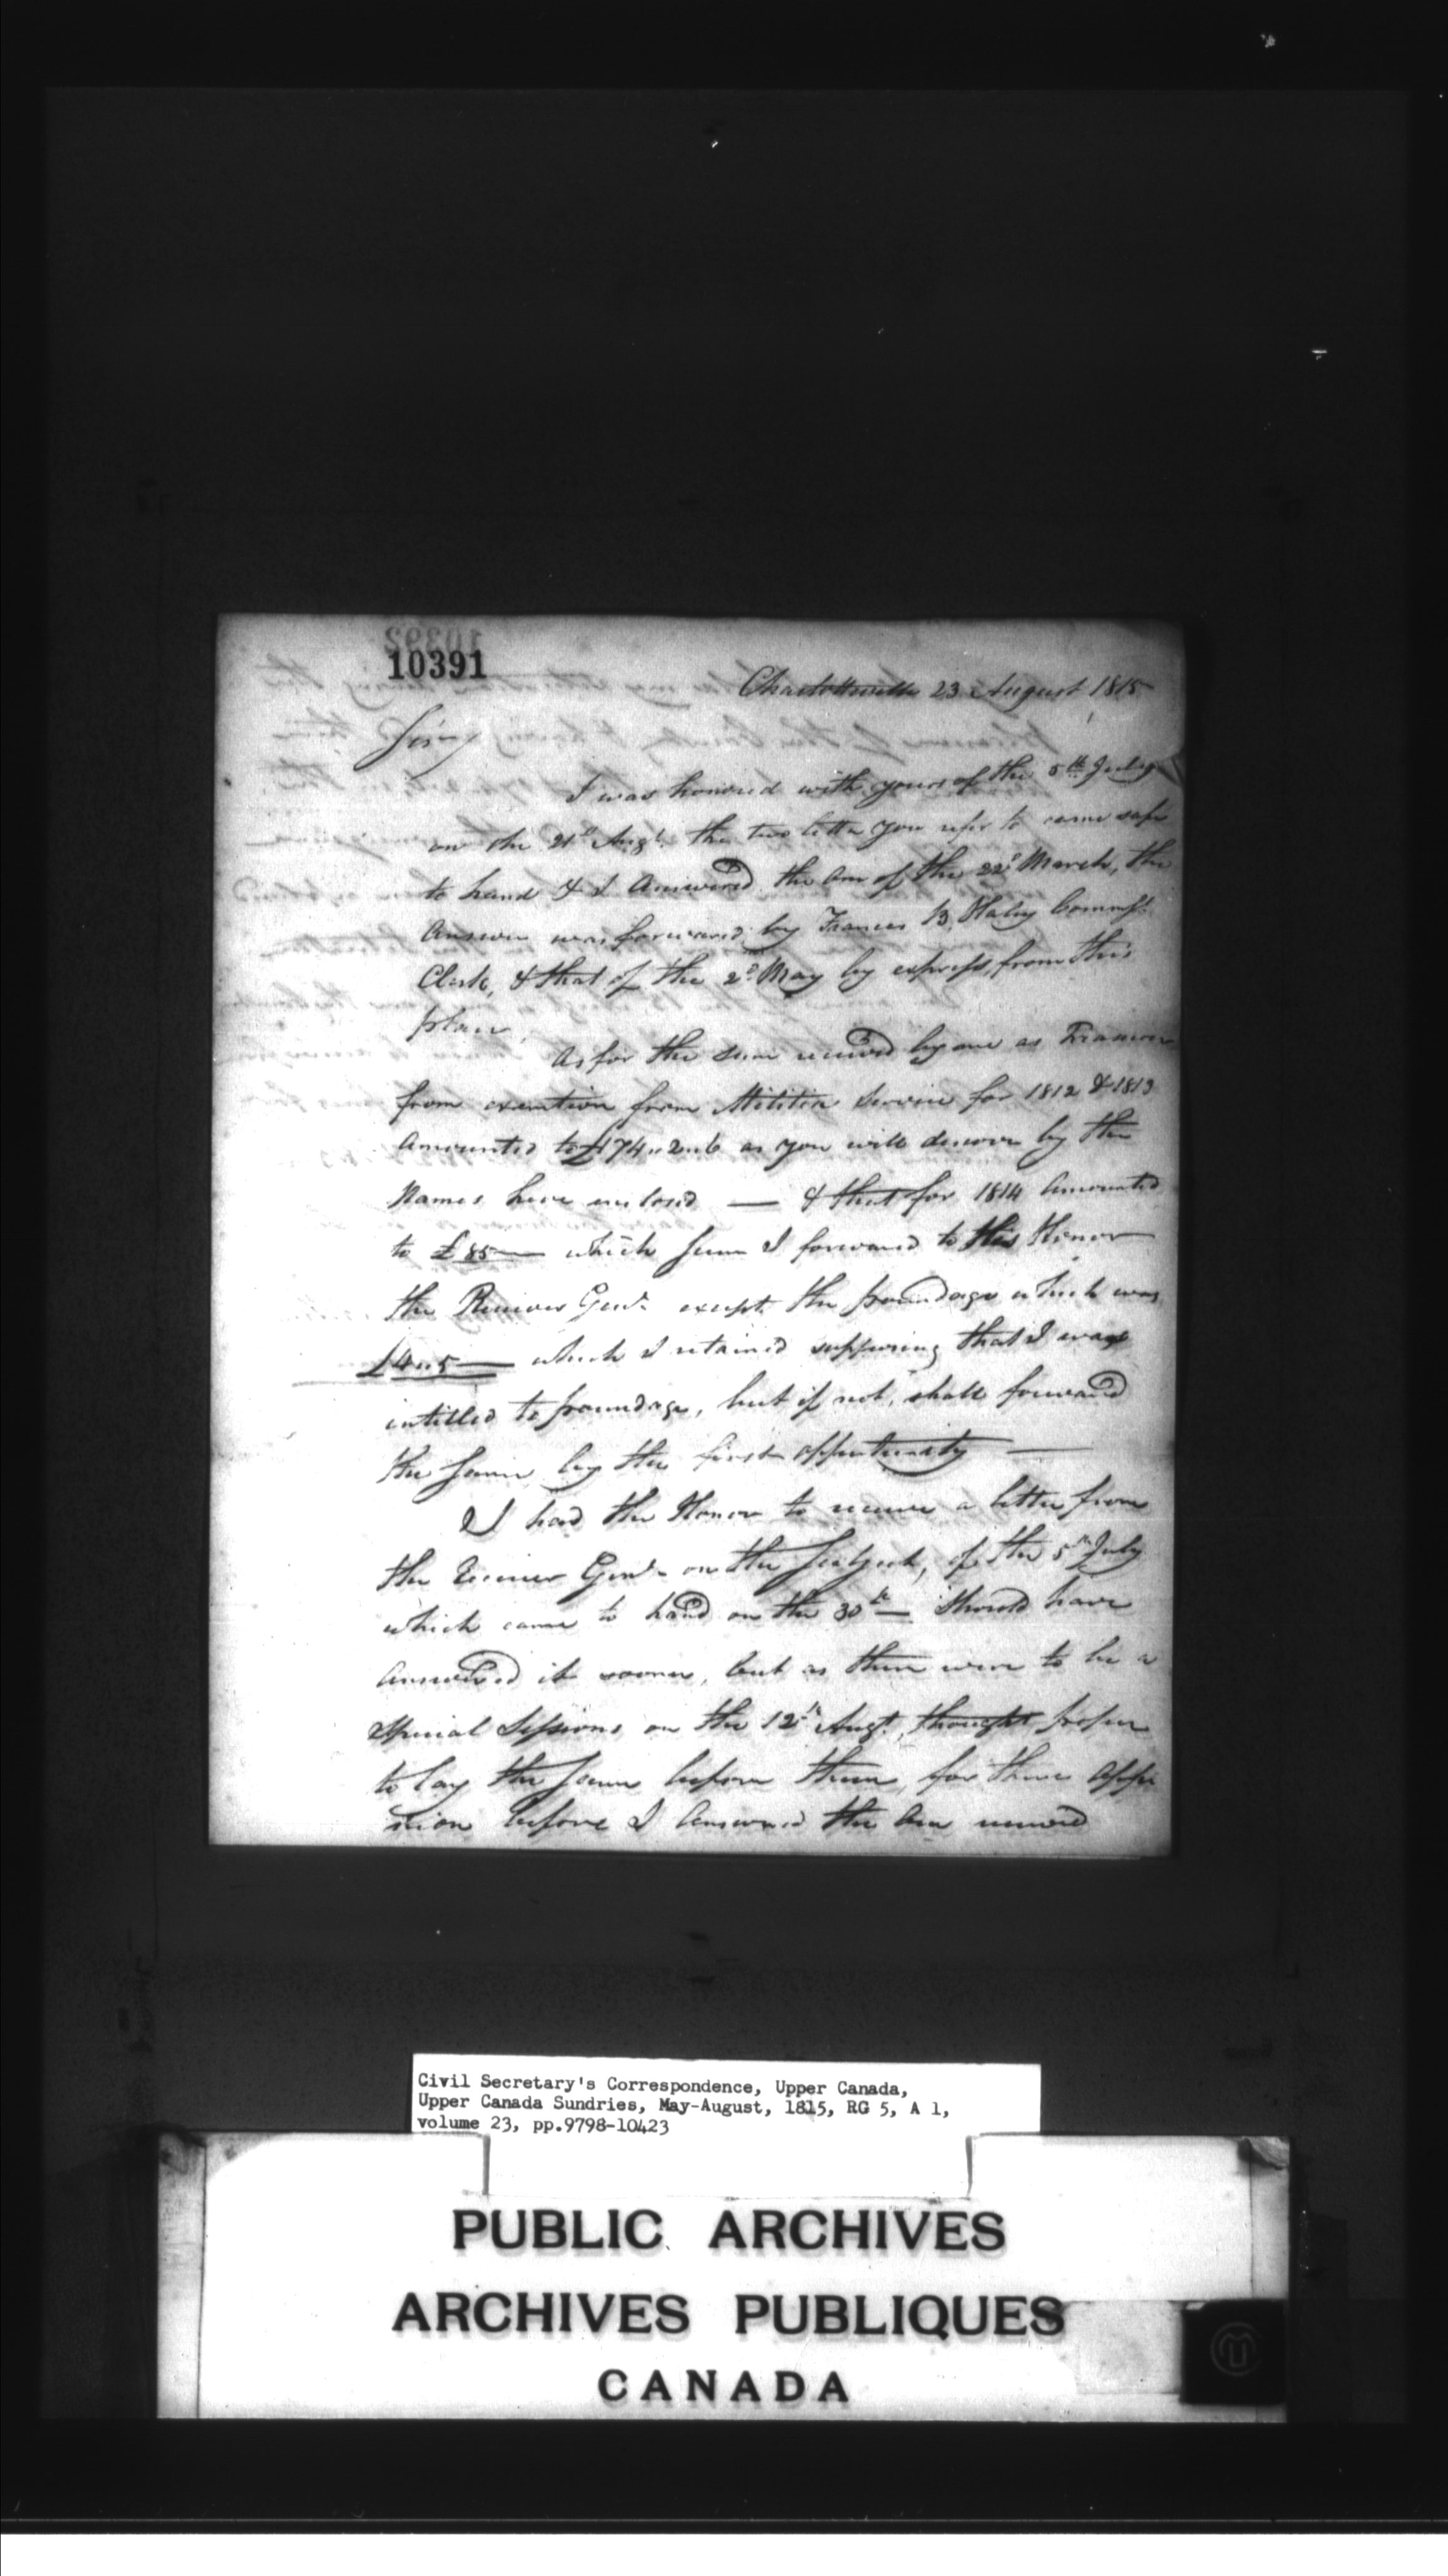 10391
Charlotteville 23 August 1815
Sir,
I was honored with yours of the 5th July
on the 21st Augt. the two letter you refer to came safe
to hand & I Answered the One of the 22d March, the
Answer was forwared by Frances B.
Clerk, & that of the 2d May by express from this
place,
As for the sum received by me as Treasurer
from exemtion from Militia Service for 1812 & 1813
Amounted to £174"2"6 as you will discover by the
Names here enclosed — & that for 1814 Amounted
to £85— which sum I forward to His Honor
the Receiver Genl. except the poundage which was
£4"5— which I retained supposing that I was
intitled to poundage, but if not, shall forward
the same by the first oppertunity —
I had the Honor to receive a letter from
the Receiver Genl. on the subject, of the 5th July
which came to hand on the 30th — Should have
Answered it sooner, but as there were to be a
Special Sessions on the 12th Augt. thought proper
to lay the same before them, for there
before I Answered the One received
Civil Secretary's Correspondence, Upper Canada,
Upper Canada Sundries, May-August, 1815, RG 5, A 1,
volume 23, pp.9798-10423
PUBLIC ARCHIVES
ARCHIVES PUBLIQUES
CANADA